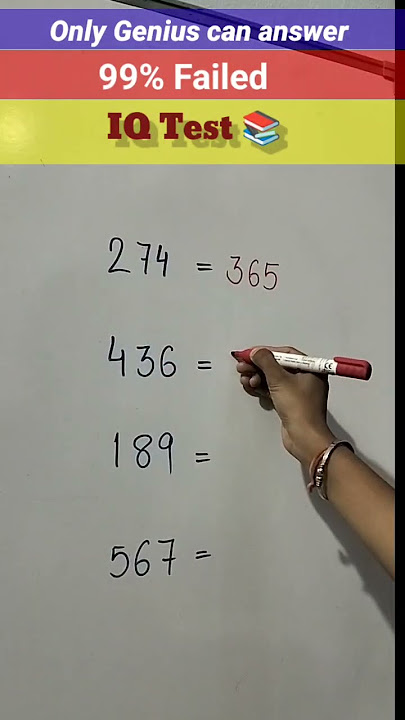 Only Genius can answer
99% Failed
IQ Test📚
274 = 365
436 =
189 =
567 =